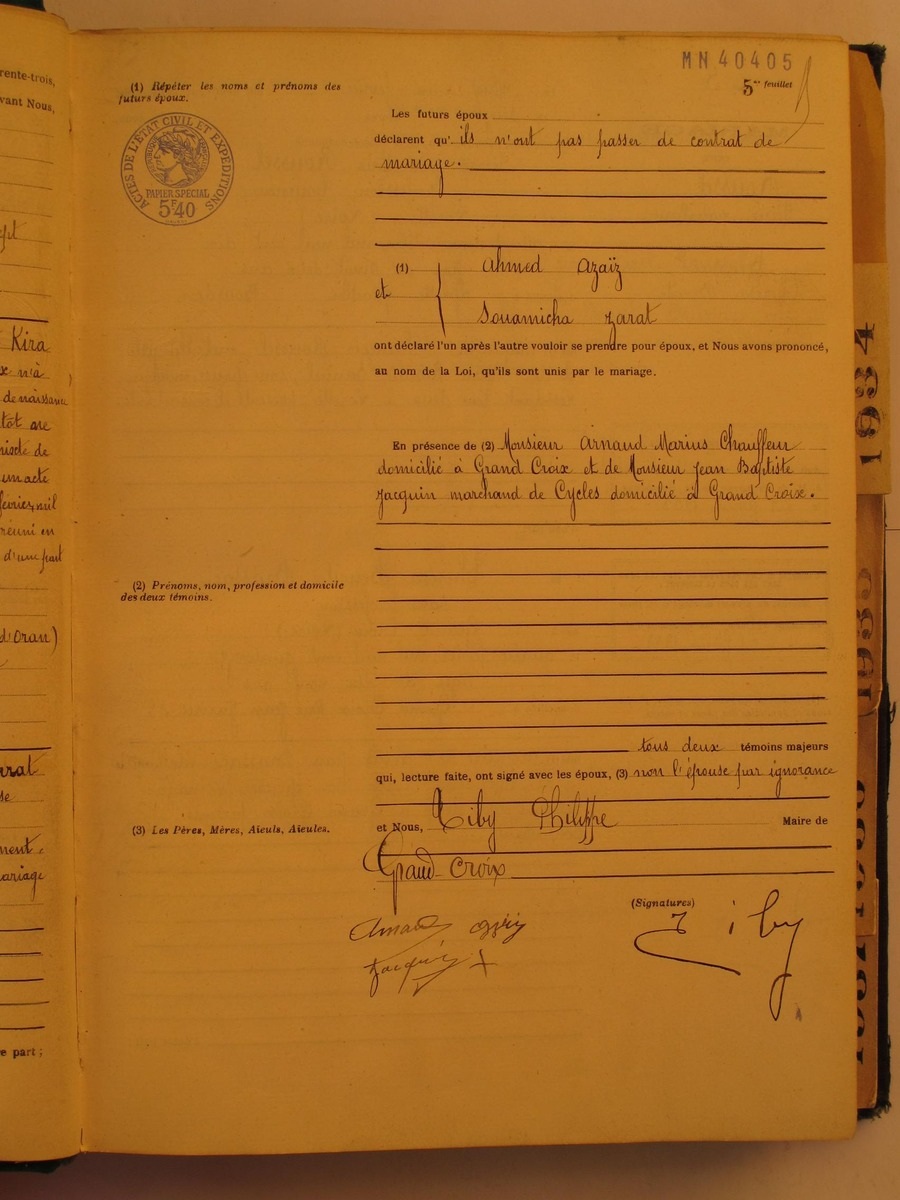 MN 40405
5me feuillet
(1) Répéter les noms et prénoms des
futurs époux.
ACTES DE L'ÉTAT CIVIL ET EXPEDITIONS
PAPIER SPECIAL
5F40
Les futurs époux
déclarent qu'ils n'ont pas passer de contrat de
mariage.
(1) Ahmed Azaïz
et
Souamicha Zarat
ont déclaré l'un après l'autre vouloir se prendre pour époux, et Nous avons prononcé,
au nom de la Loi, qu'ils sont unis par le mariage.
En présence de (2) Monsieur Arnaud Marius Chauffeur
domicilié à Grand Croix et de Monsieur Jean Baptiste
Jacquin marchand de Cycles domicilié à Grand Croix.
(2) Prénoms, nom, profession et domicile
des deux témoins.
tous deux témoins majeurs
qui, lecture faite, ont signé avec les époux, (3) non l'épouse par ignorance
(3) Les Pères, Mères, Aieuls, Aieules.
et Nous, Tiby Philippe Maire de
Grand-Croix
(Signatures)
Tiby
Jacquin
rente-trois,
vant Nous,
Kira
x n'à
de naissance
un acte
réuni en
d'une part
d'Oran)
ariage
e part ;
1934